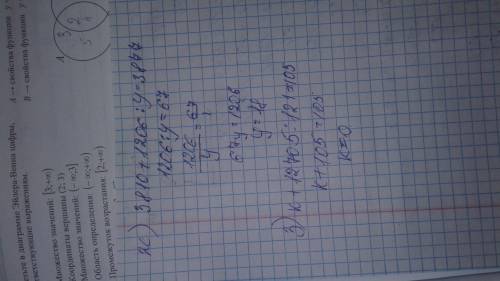 етьте в диаграмме Эйлера-Венна цифры,
тветствующие выражениям.
A → свойства функции y
B → свойства функции y
Множество значений: [3;+∞)
Координаты вершины (2; 3)
Множество значений: (−∞;3]
Область определения: (−∞;+∞)
Промежуток возрастания: [2;+∞)
A
3
2
5
2с) 3810+1206:y=3877
1206:y=67
1206/y=67/1
67y=1206
y=18
3) k+12705:121=105
k+105=105
k=0